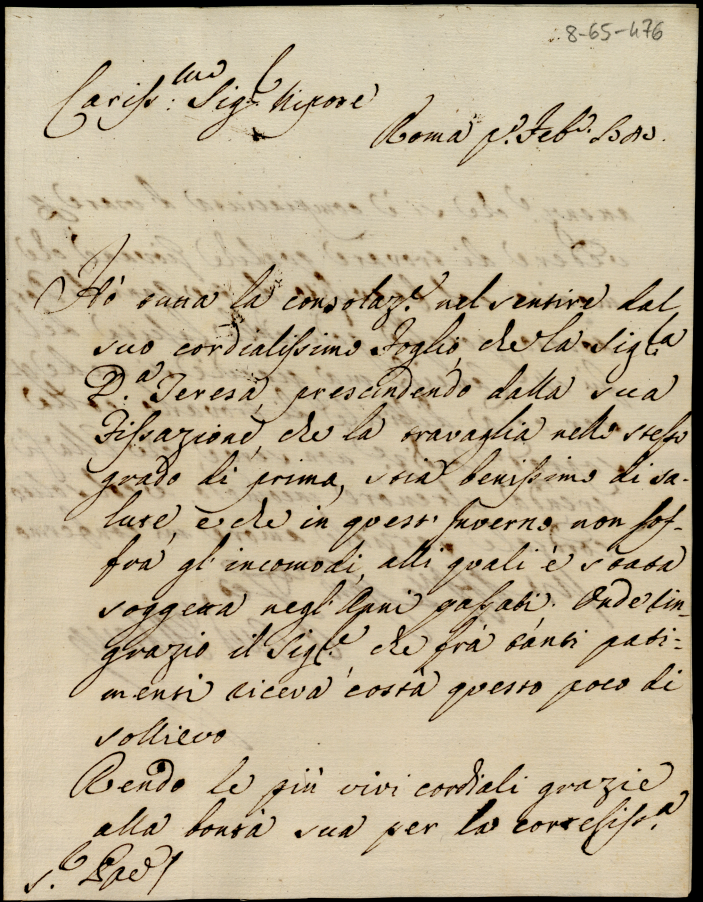 8-65-476
Cariss:mo Sig.r Nipote
Roma p.o Feb.o
Hò tutta la consolaz.e nel sentire dal
suo cordialissimo Foglio, che la Sig.ra
D.a Teresa, prescindendo dalla sua
Fissazione, che la travaglia nello stesso
grado di prima, stia benissimo di sa-
lute, e che in questo Inverno non sof-
fra gl'incomodi, alli quali è stata
soggetta negl'Anni passati. Onde rin-
grazio il Sig.re che frà tanti pati-
menti riceva costà questo poco di
sollievo
Rendo le più vivi cordiali grazie
alla bontà sua per la cortesiss.a